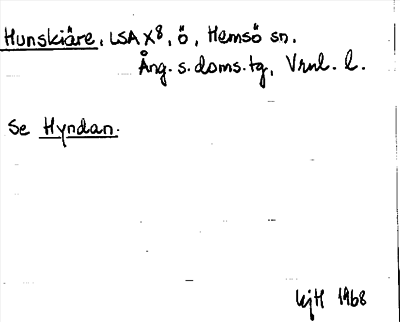 Hunskiäre, LSA X⁸, ö, Hemsö sn.
Ång. s. doms. tg, Vrnl. l.
Se Hyndan.
KjH 1968